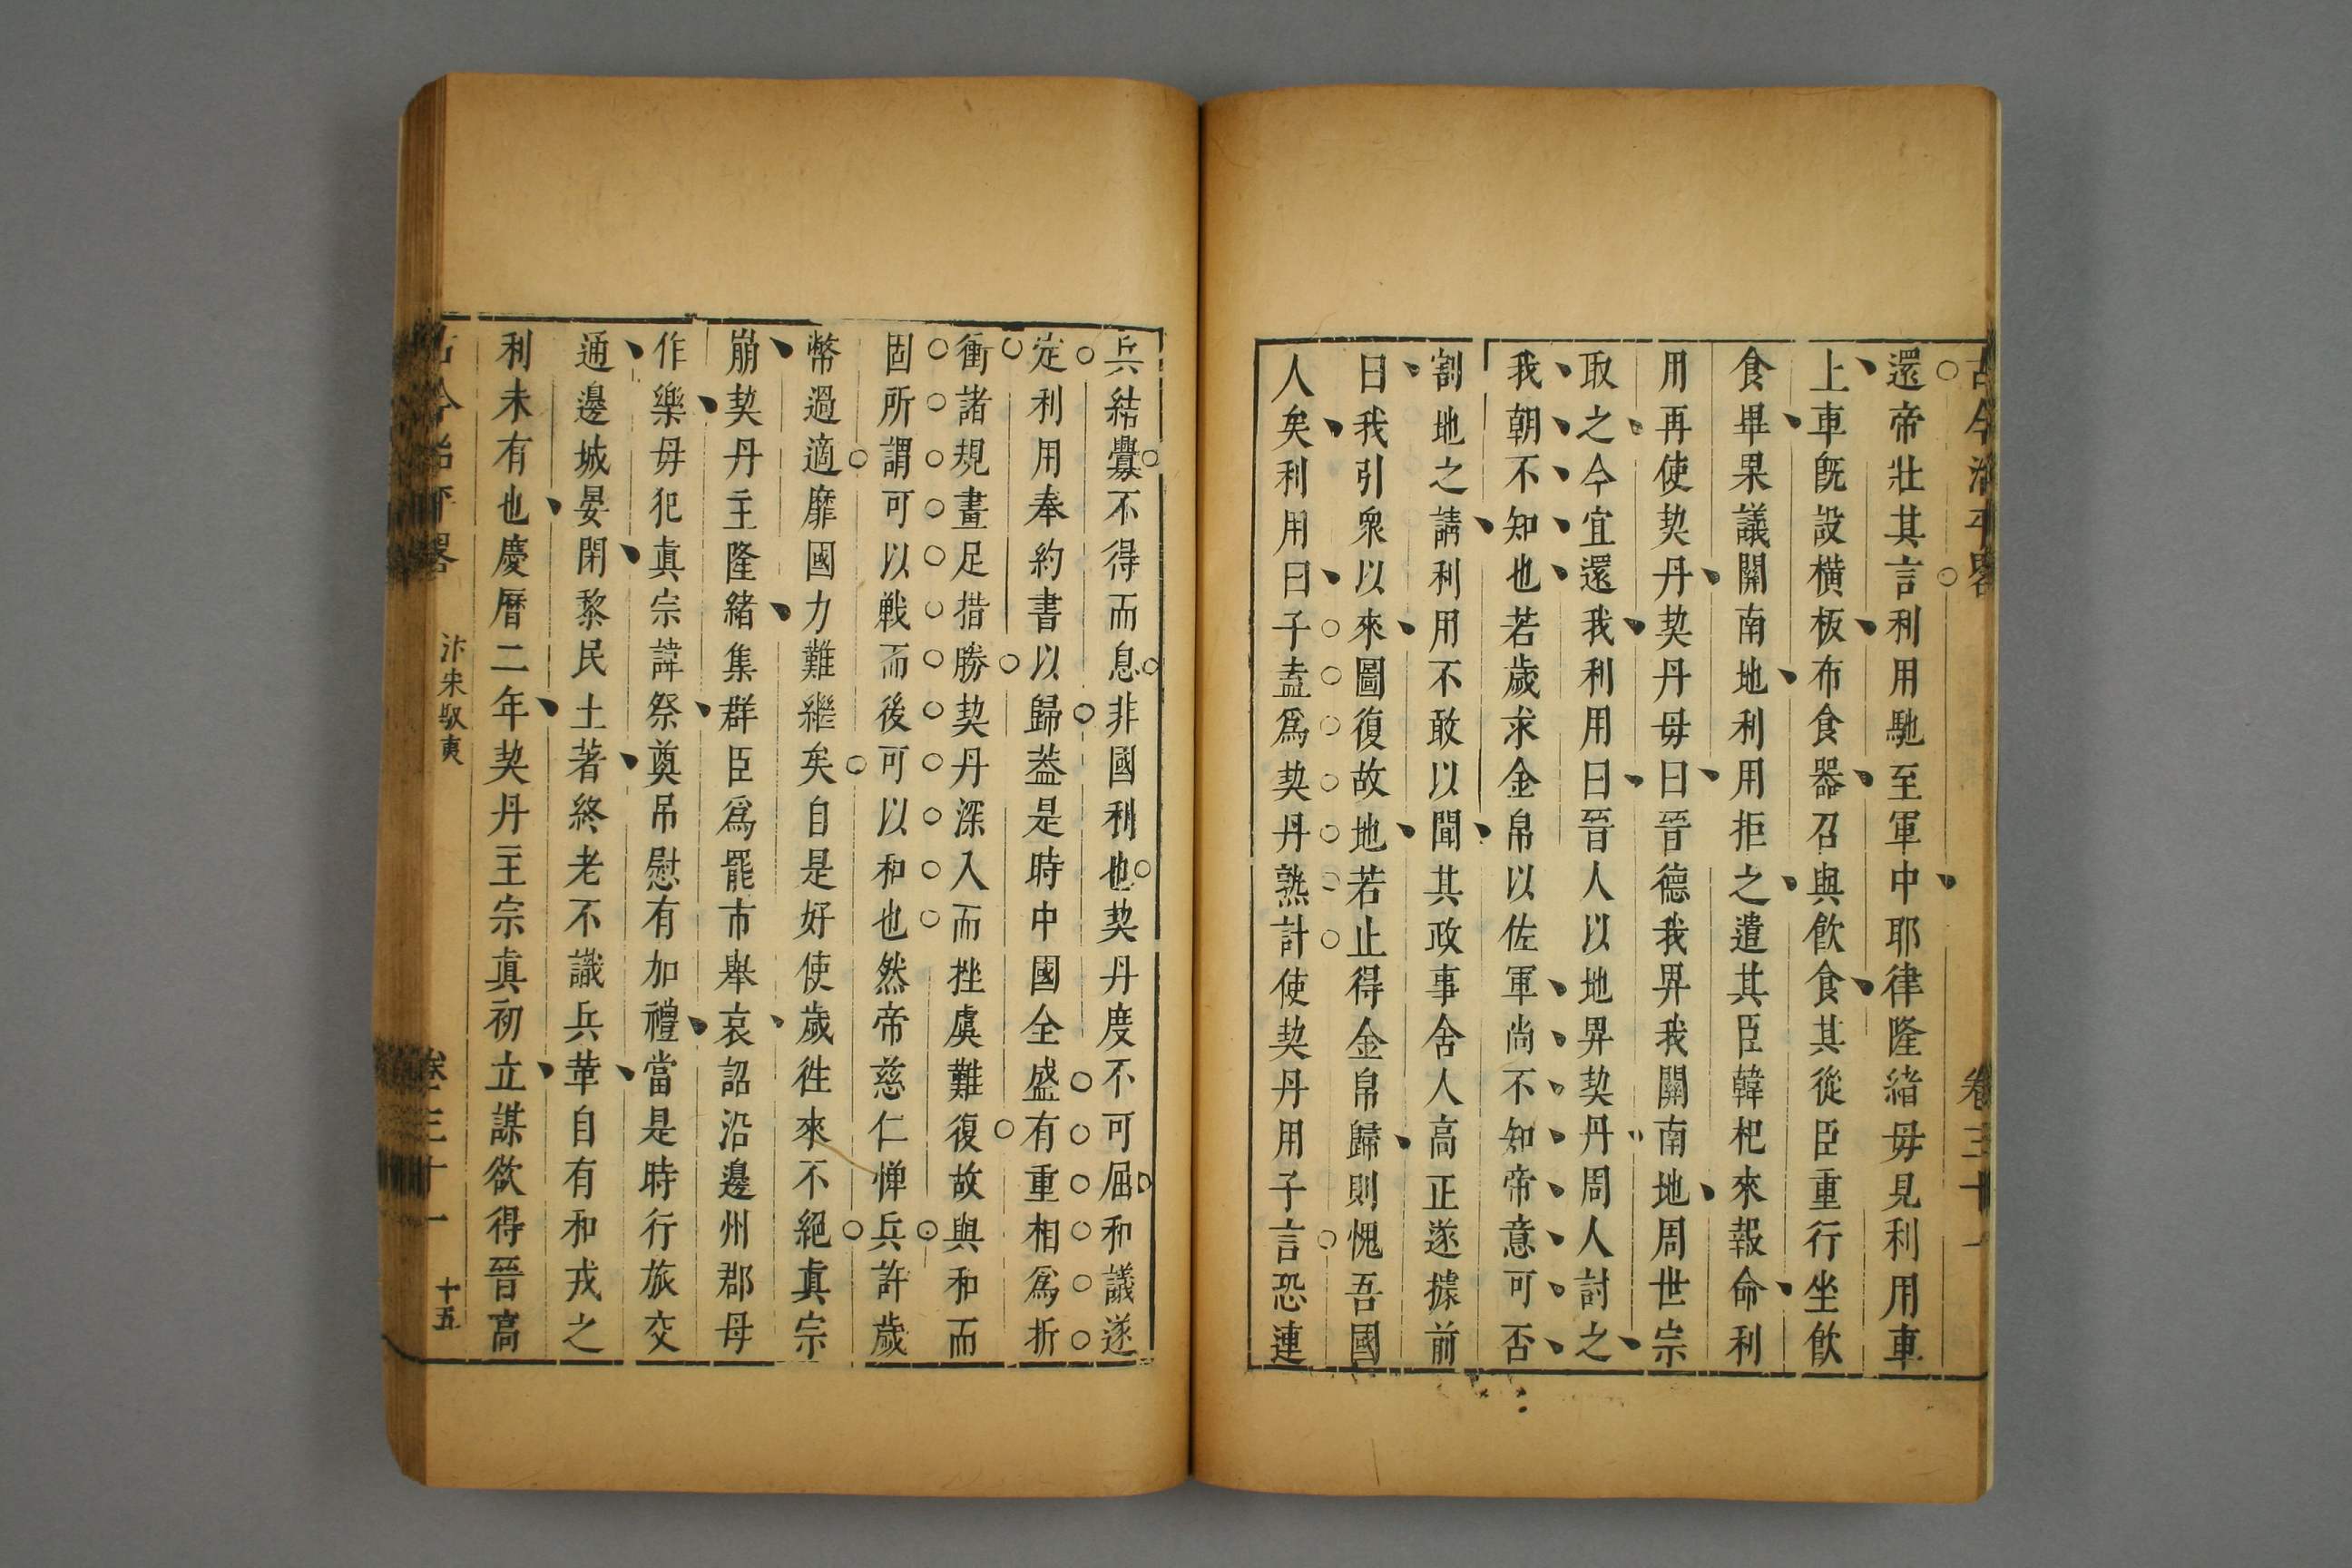 古今治平畧 卷三十一
還帝壯其言利用馳至軍中耶律隆緒毋見利用車
上車旣設橫板布食器召與飮食其從臣重行坐飮
食畢果議關南地利用拒之遣其臣韓杞來報命利
用再使契丹契丹毋曰晉德我畀我關南地周世宗
取之今宜還我利用曰晉人以地畀契丹周人討之
我朝不知也若歲求金帛以佐軍尚不知帝意可否
割地之請利用不敢以聞其政事舍人高正遂據前
曰我引衆以來圖復故地若止得金帛歸則愧吾國
人矣利用曰子盍爲契丹熟計使契丹用子言恐連
兵結釁不得而息非國利也契丹度不可屈和議遂
定利用奉約書以歸葢是時中國全盛有重相爲折
衝諸規畫足措勝契丹深入而挫虞難復故與和而
固所謂可以戰而後可以和也然帝慈仁惮兵許歲
幣過適靡國力難繼矣自是好使歲徃來不絕眞宗
崩契丹主隆緒集群臣爲罷市舉哀詔沿邊州郡毋
作樂毋犯眞宗諱祭奠吊慰有加禮當是時行旅交
通邊城晏閉黎民土著終老不識兵革自有和戎之
利未有也慶曆二年契丹主宗眞初立謀欲得晉高
古今治平畧 汴宋馭夷 卷三十一 十五